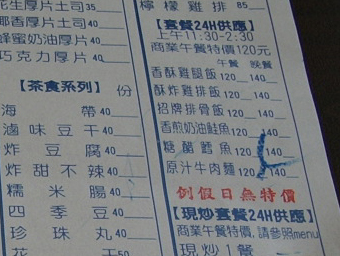 花生厚片土司35
椰香厚片土司40
蜂蜜奶油厚片40
巧克力厚片40
【茶食系列】 份
海帶40
滷味豆干40
炸豆腐40
炸甜不辣40
糯米腸40
四季豆40
珍珠丸40
檸檬雞排85
【套餐24H供應】
上午11:30-2:30
商業午餐特價120元
午餐 晚餐
香酥雞腿飯120 140
酥炸雞排飯120 140
招牌排骨飯120 140
香煎奶油鮭魚120 140
糖醋鱈魚120 140
原汁牛肉麵120 140
例假日無特價
【現炒套餐24H供應】
商業午餐特價,請參照menu
現炒1餐